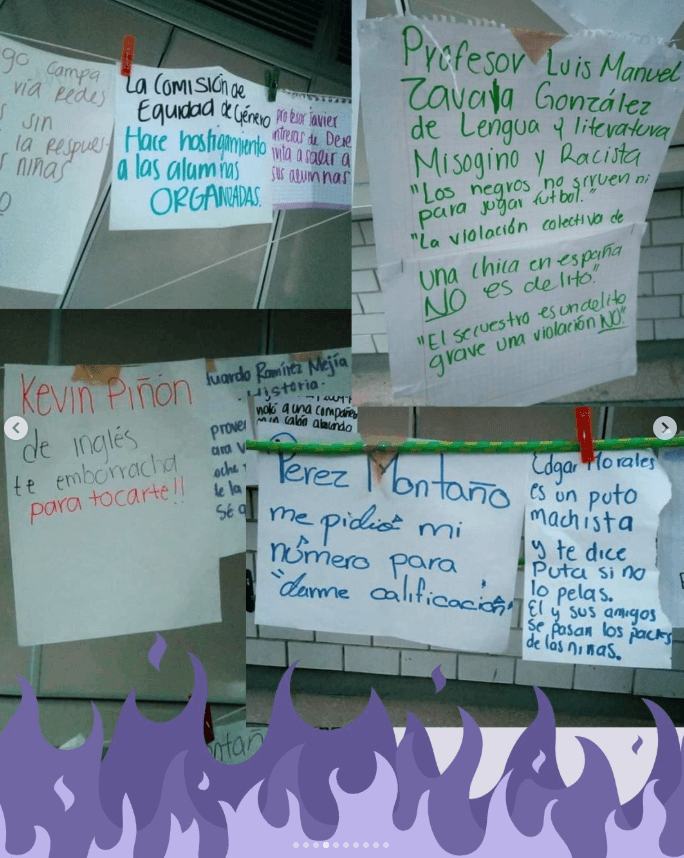 go campa
vía Redes
sin
la Respues
niñas
La Comisión de
Equidad de Género
Hace hostigamiento
a las alumnas
ORGANIZADAS.
profesor Javier
de Dere
a salir a
sus alumnas
Profesor Luis Manuel
Zavala González
de Lengua y literatura
Misogino y Racista
"Los negros no sirven ni
para jugar futbol."
"La violación colectiva de
una chica en españa
NO es delito"
"El secuestro es un delito
grave una violación NO"
Kevin Piñon
de inglés
te emborracha
para tocarte!!
uardo Ramírez Mejía
Historia.
a una compañe
salón
prover
ara v
oche
le la
Sé q
Perez Montaño
me pidió mi
número para
"darme calificación"
Edgar Morales
es un puto
machista
y te dice
Puta si no
lo pelas.
El y sus amigos
se pasan los packs
de las niñas.
ntañ